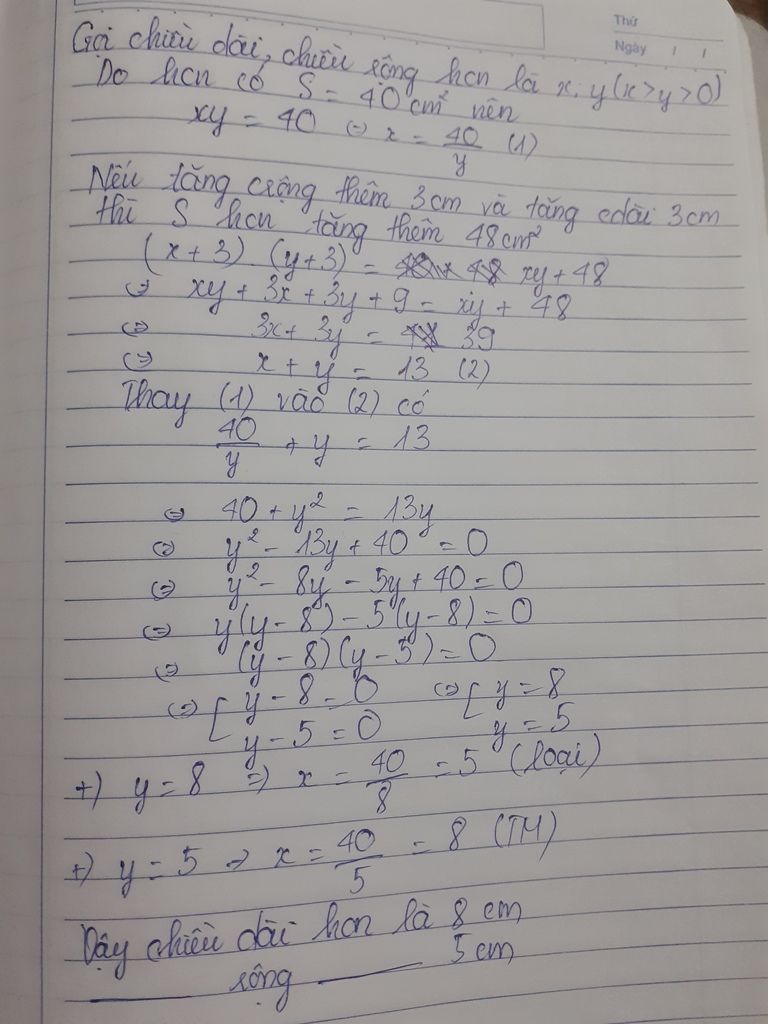 Thứ
Ngày / /
Gọi chiều dài, chiều rộng hcn là x, y (x>y>0)
Do hcn có S = 40 cm² nên
xy = 40 ⇔ x = 40/y (1)
Nếu tăng crộng thêm 3cm và tăng cdài 3cm
thì S hcn tăng thêm 48cm²
(x+3).(y+3) = xy+48
⇔ xy + 3x + 3y + 9 = xy + 48
⇔ 3x + 3y = 39
⇔ x + y = 13 (2)
Thay (1) vào (2) có
40/y + y = 13
⇔ 40 + y² = 13y
⇔ y² - 13y + 40 = 0
⇔ y² - 8y - 5y + 40 = 0
⇔ y(y-8) - 5(y-8) = 0
⇔ (y-8)(y-5) = 0
⇔ [ y - 8 = 0 ⇔ [ y = 8
y - 5 = 0 y = 5
+) y = 8 ⇒ x = 40/8 = 5 (loại)
+) y = 5 ⇒ x = 40/5 = 8 (TM)
Vậy chiều dài hcn là 8 cm
rộng 5cm